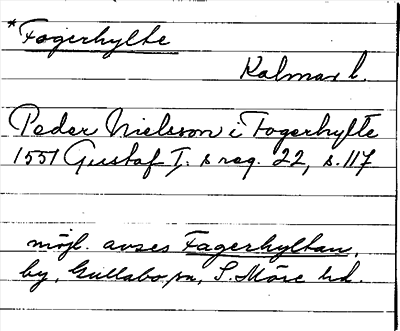 *Fagerhylte
Kalmar l.
Peder Nielsson i Fogerhylte
1551 Gustaf I. s reg. 22, s. 117
möjl. avses Fagerhyltan,
by, Gullabo sn, S. Möre hd.